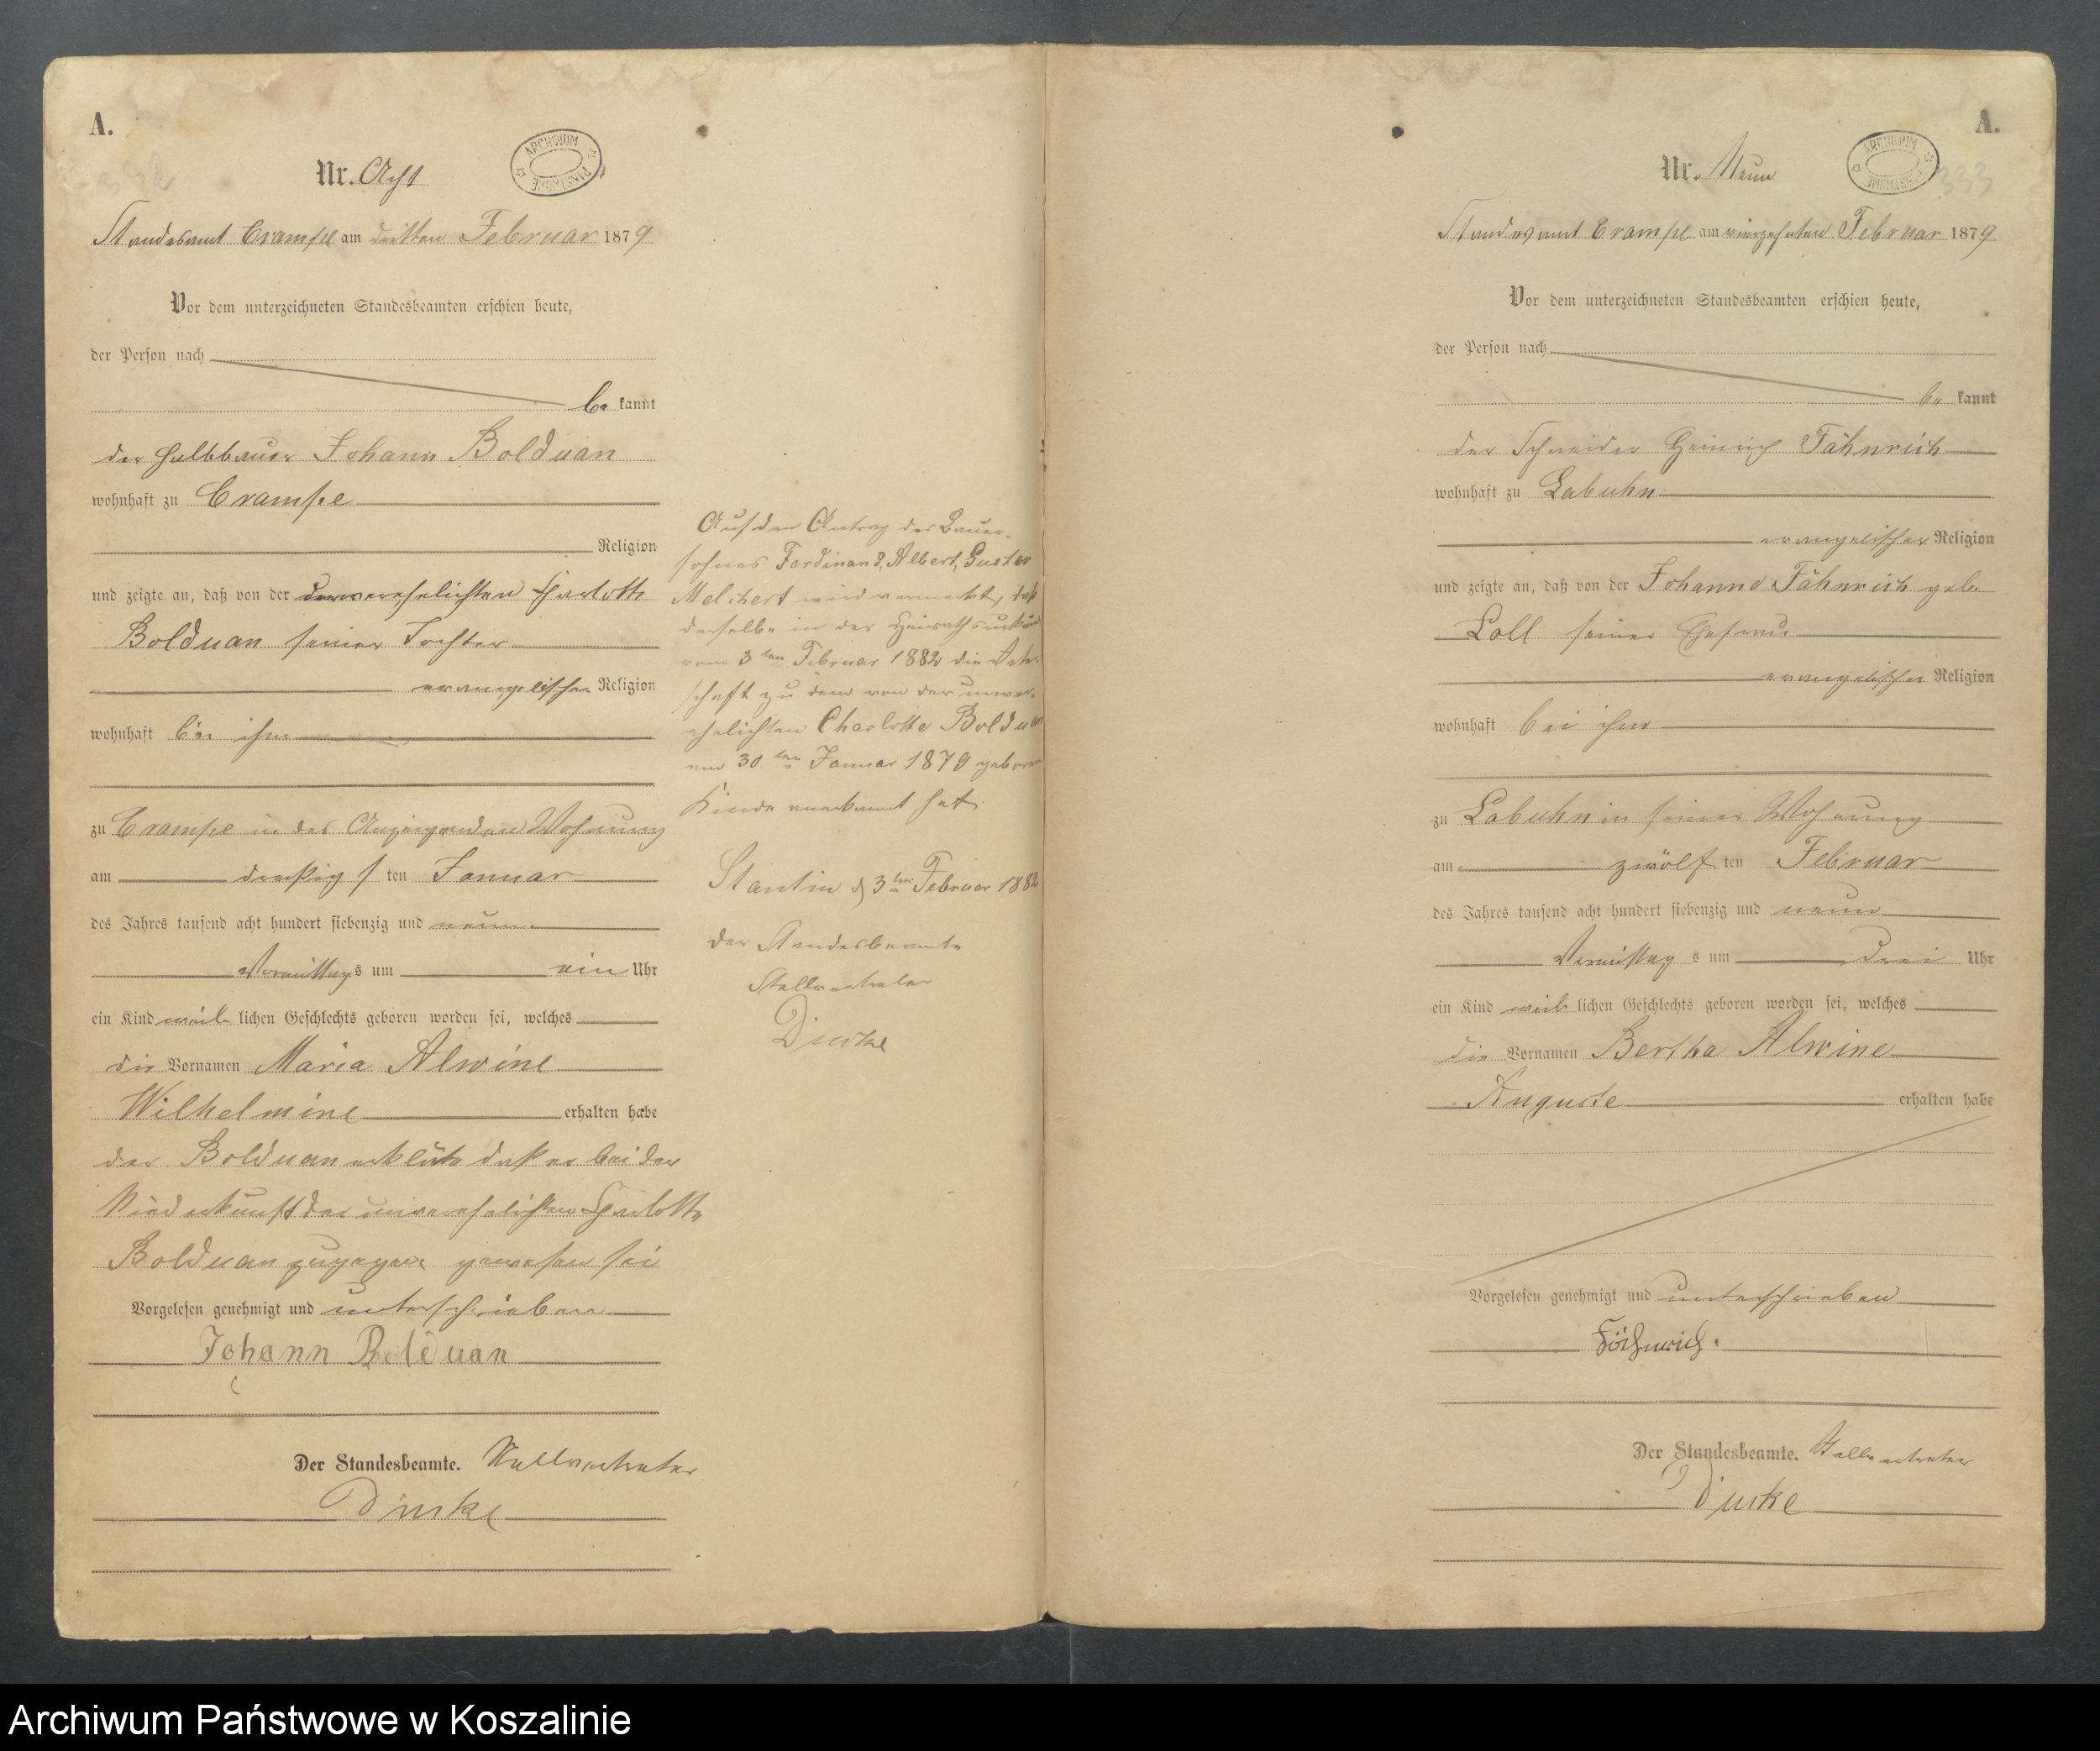 A.
Nr. Acht
ARCHIWUM PAŃSTWOWE
332
Standesamt Crampe am dritten Februar 1879
Vor dem unterzeichneten Standesbeamten erschien heute,
der Person nach
be kannt
der Halbbauer Johann Bolduan
wohnhaft zu Crampe
Religion
und zeigte an, daß von der unverehelichten Charlotte
Bolduan seiner Tochter
evangelischer Religion
wohnhaft bei ihm
zu Crampe in des Anzeigenden Wohnung
am dreißigsten Januar
des Jahres tausend acht hundert siebenzig und neun
Vormittags um ein Uhr
ein Kind weiblichen Geschlechts geboren worden sei, welches
die Vornamen Maria Alwine
Wilhelmine erhalten habe
der Bolduan erklärte daß er bei der
Niederkunft der unverehelichten Charlotte
Bolduan zugegen gewesen sei
Vorgelesen genehmigt und unterschrieben
Johann Bolduan
Der Standesbeamte. Stellvertreter
Auf den Antrag des Bauer-
sohnes Ferdinand, Albert, Gustav
Melchert wird vermerkt, daß
derselbe in der Heirathsurkunde
vom 3ten Februar 1882 die Vater-
schaft zu dem von der unver-
ehelichten Charlotte Bolduan
am 30ten Januar 1879 geboren
Kinde anerkannt hat
Stantin d 3ten Februar 1882
der Standesbeamte
Stellvertreter
A.
Nr. Neun
ARCHIWUM PAŃSTWOWE
333
Standesamt Crampe am vierzehnten Februar 1879
Vor dem unterzeichneten Standesbeamten erschien heute,
der Person nach
be kannt
der Schneider Heinrich Fähnrich
wohnhaft zu Labuhn
evangelischer Religion
und zeigte an, daß von der Johanne Fähnrich geb.
Loll seiner Ehefrau
evangelischer Religion
wohnhaft bei ihm
zu Labuhn in seiner Wohnung
am zwölf ten Februar
des Jahres tausend acht hundert siebenzig und neun
Vormittag s um drei Uhr
ein Kind weiblichen Geschlechts geboren worden sei, welches
die Vornamen Bertha Alwine
Auguste erhalten habe
Vorgelesen genehmigt und unterschrieben
Fähnrich.
Der Standesbeamte. Stellvertreter
Archiwum Państwowe w Koszalinie